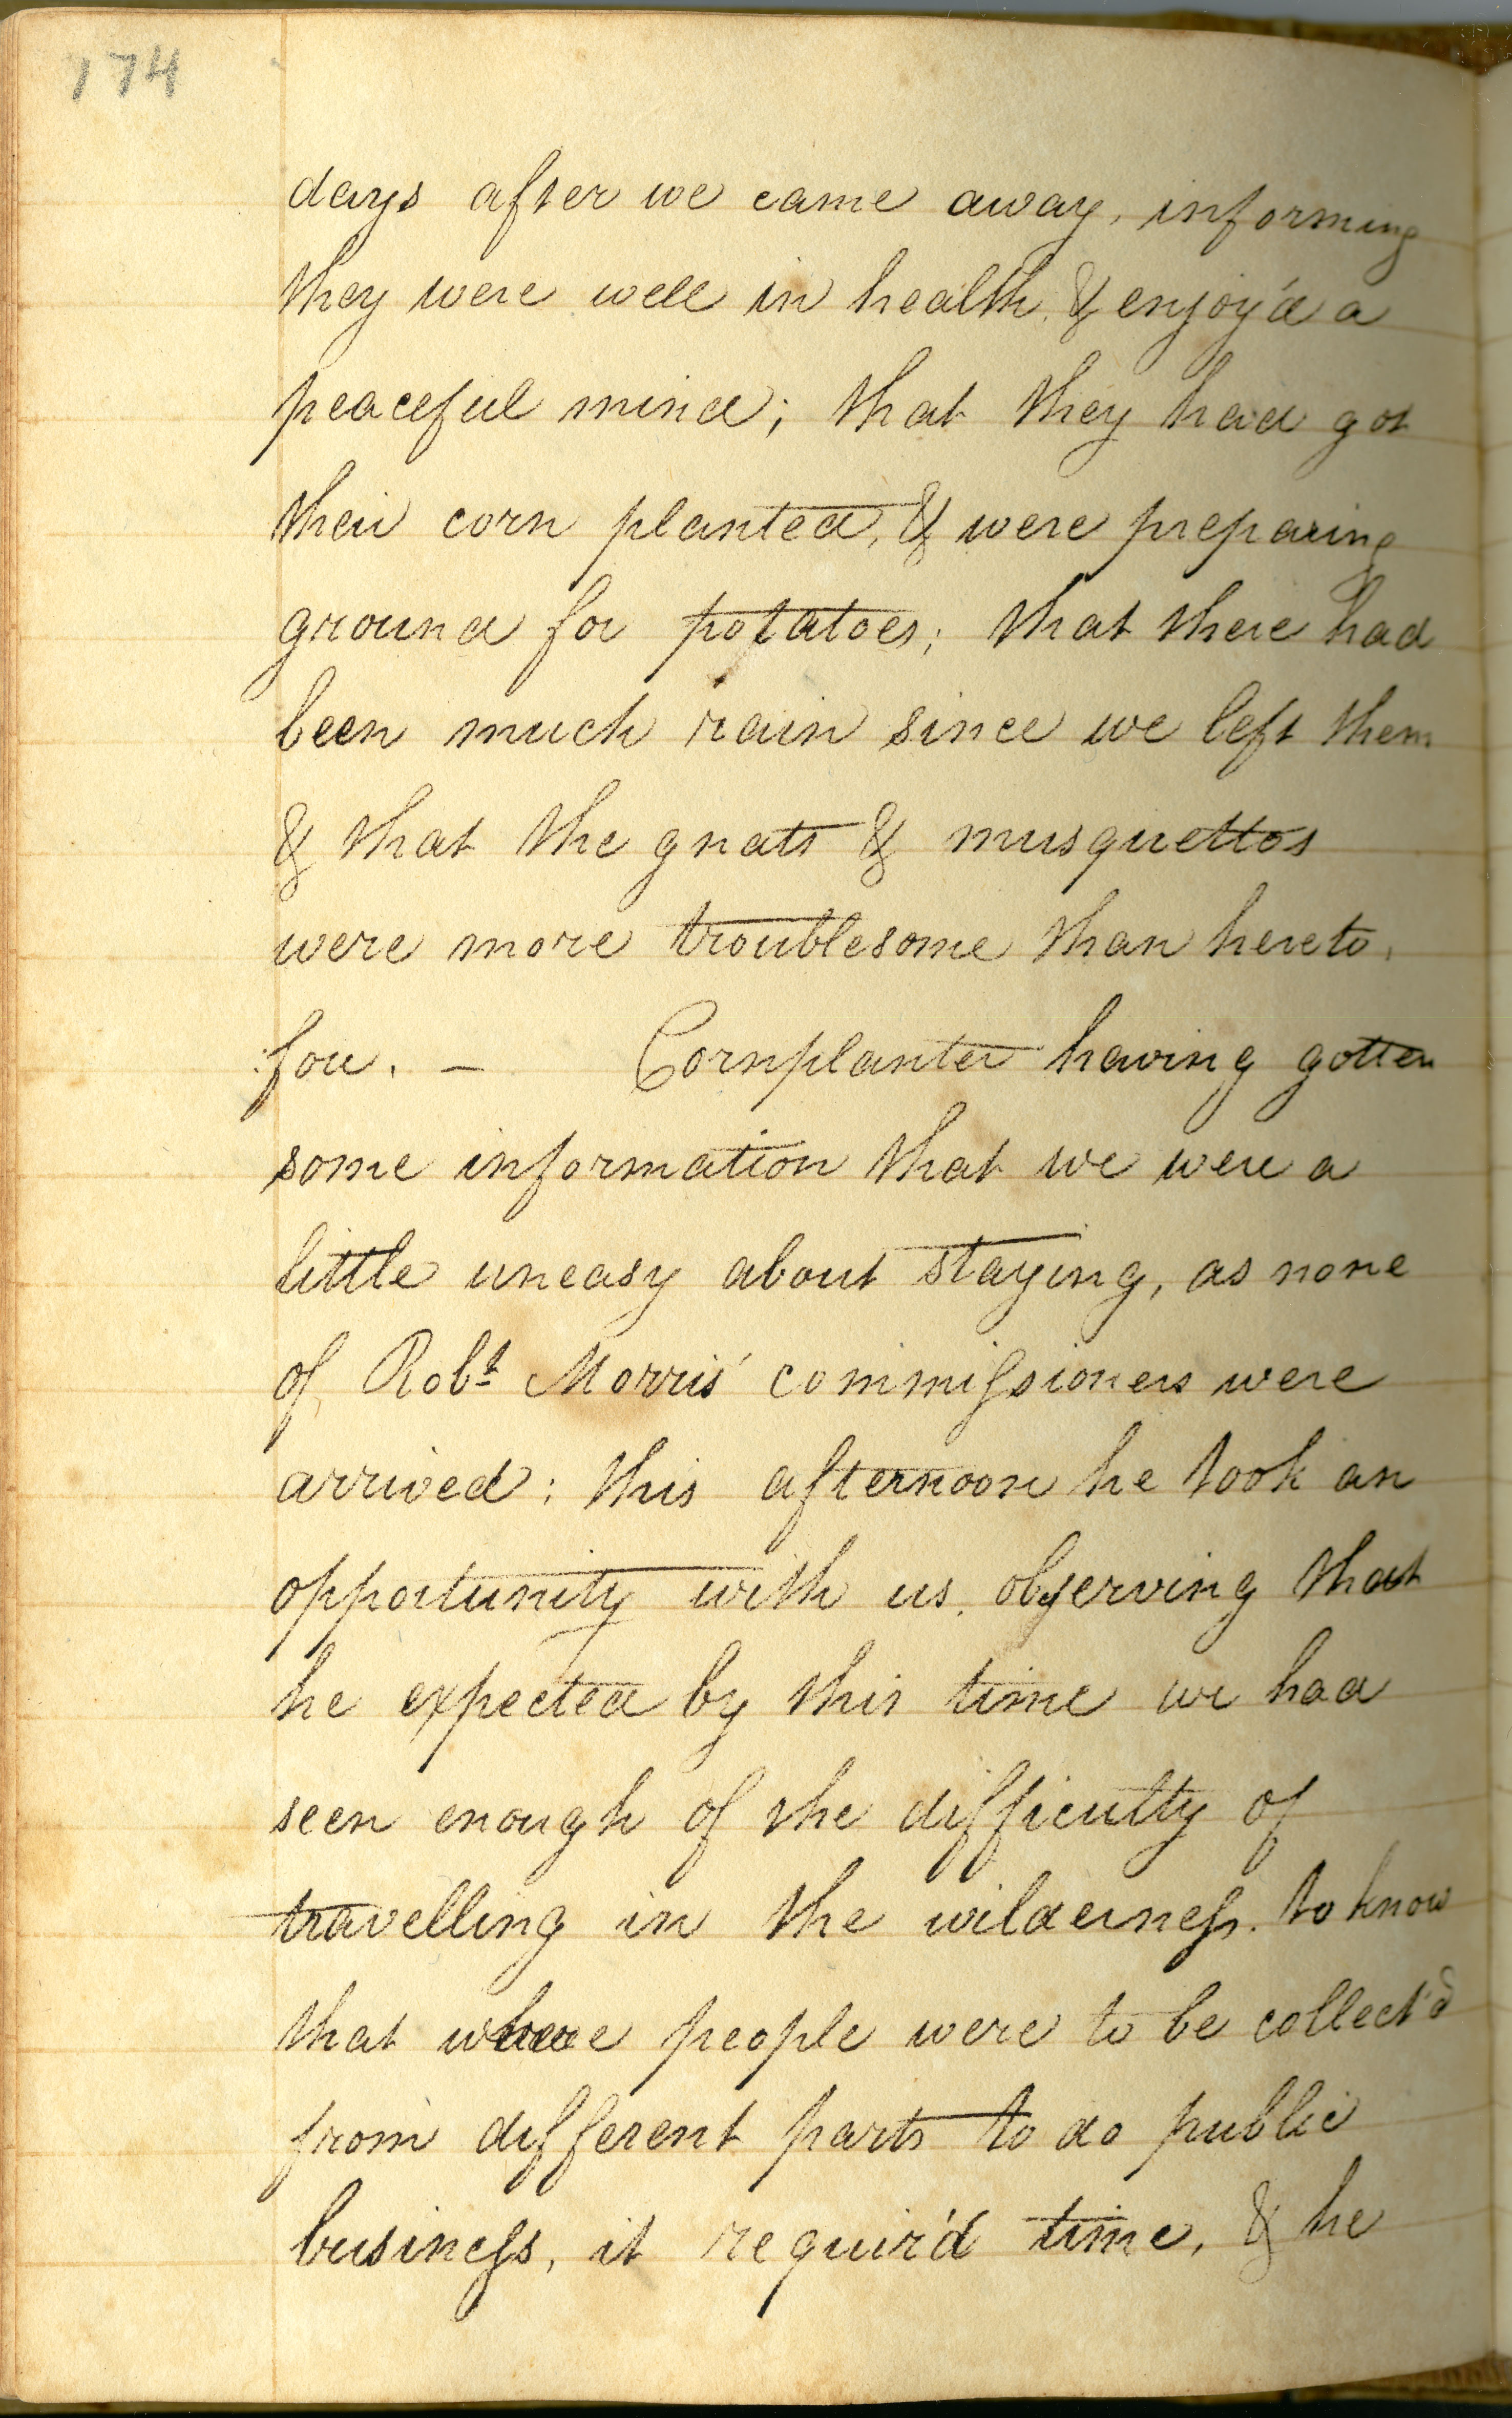 174
days after we came away, informing
they were well in health, & enjoy'd a
peaceful mind; that they had got
their corn planted, & were preparing
ground for potatoes; that there had
been much rain since we left them
& that the gnats & musquettos
were more troublesome than hereto-
:fore. — Cornplanter having gotten
some information that we were a
little uneasy about staying, as none
of Robt Morris' commissioners were
arrived; this afternoon he took an
opportunity with us, observing that
he expected by this time we had
seen enough of the difficulty of
travelling in the wilderness, to know
that where people were to be collect'd
from different parts to do public
business, it requir'd time, & he